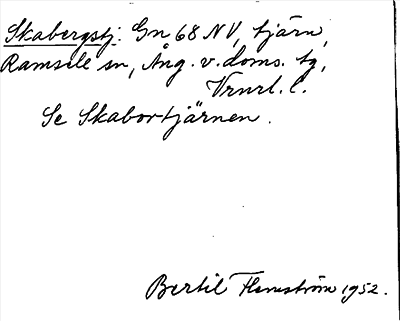 Skabergstj. Gn 68 NV, tjärn,
Ramsele sn, Ång. v. doms. tg,
Vrnrl. l.
Se Skabortjärnen.
Bertil Flemström 1952.